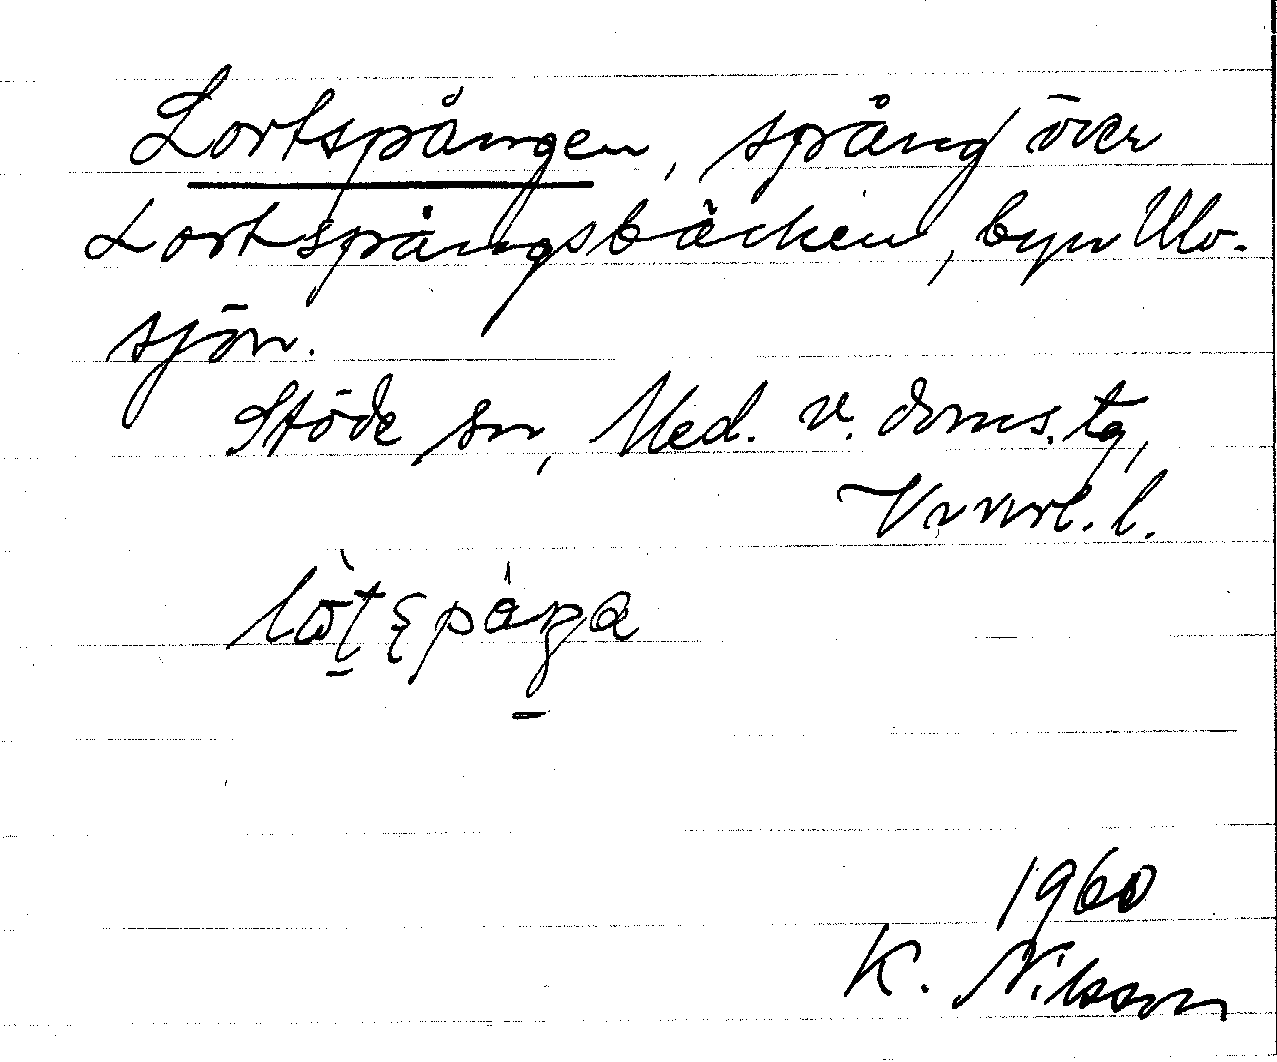 Lortspången, spång över
Lortspångsbäcken, byn Ulv-
sjön.
Stöde sn, Med. v. doms. tg,
Vnorl. l.
1960
K. Nilsson